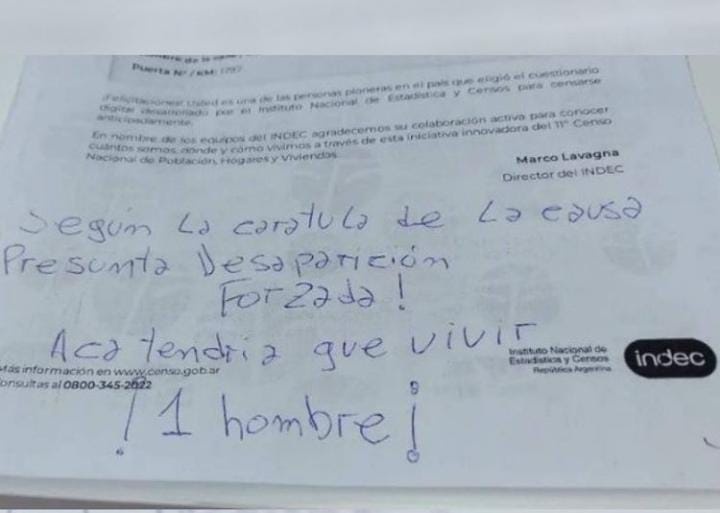 Puerta Nº / KM: 1797
¡Felicitaciones! Usted es una de las personas pioneras en el país que eligió el cuestionario
digital desarrollado por el Instituto Nacional de Estadística y Censos para censarse
anticipadamente.
En nombre de los equipos del INDEC agradecemos su colaboración activa para conocer
cuántos somos, dónde y cómo vivimos a través de esta iniciativa innovadora del 11º Censo
Nacional de Población, Hogares y Viviendas.
Marco Lavagna
Director del INDEC
Segun La caratula de La causa
Presunta Desaparición
Forzada!
Aca tendria que vivir
Instituto Nacional de
Estadística y Censos
República Argentina
indec
Más información en www.censo.gob.ar
onsultas al 0800-345-2022
¡1 hombre!